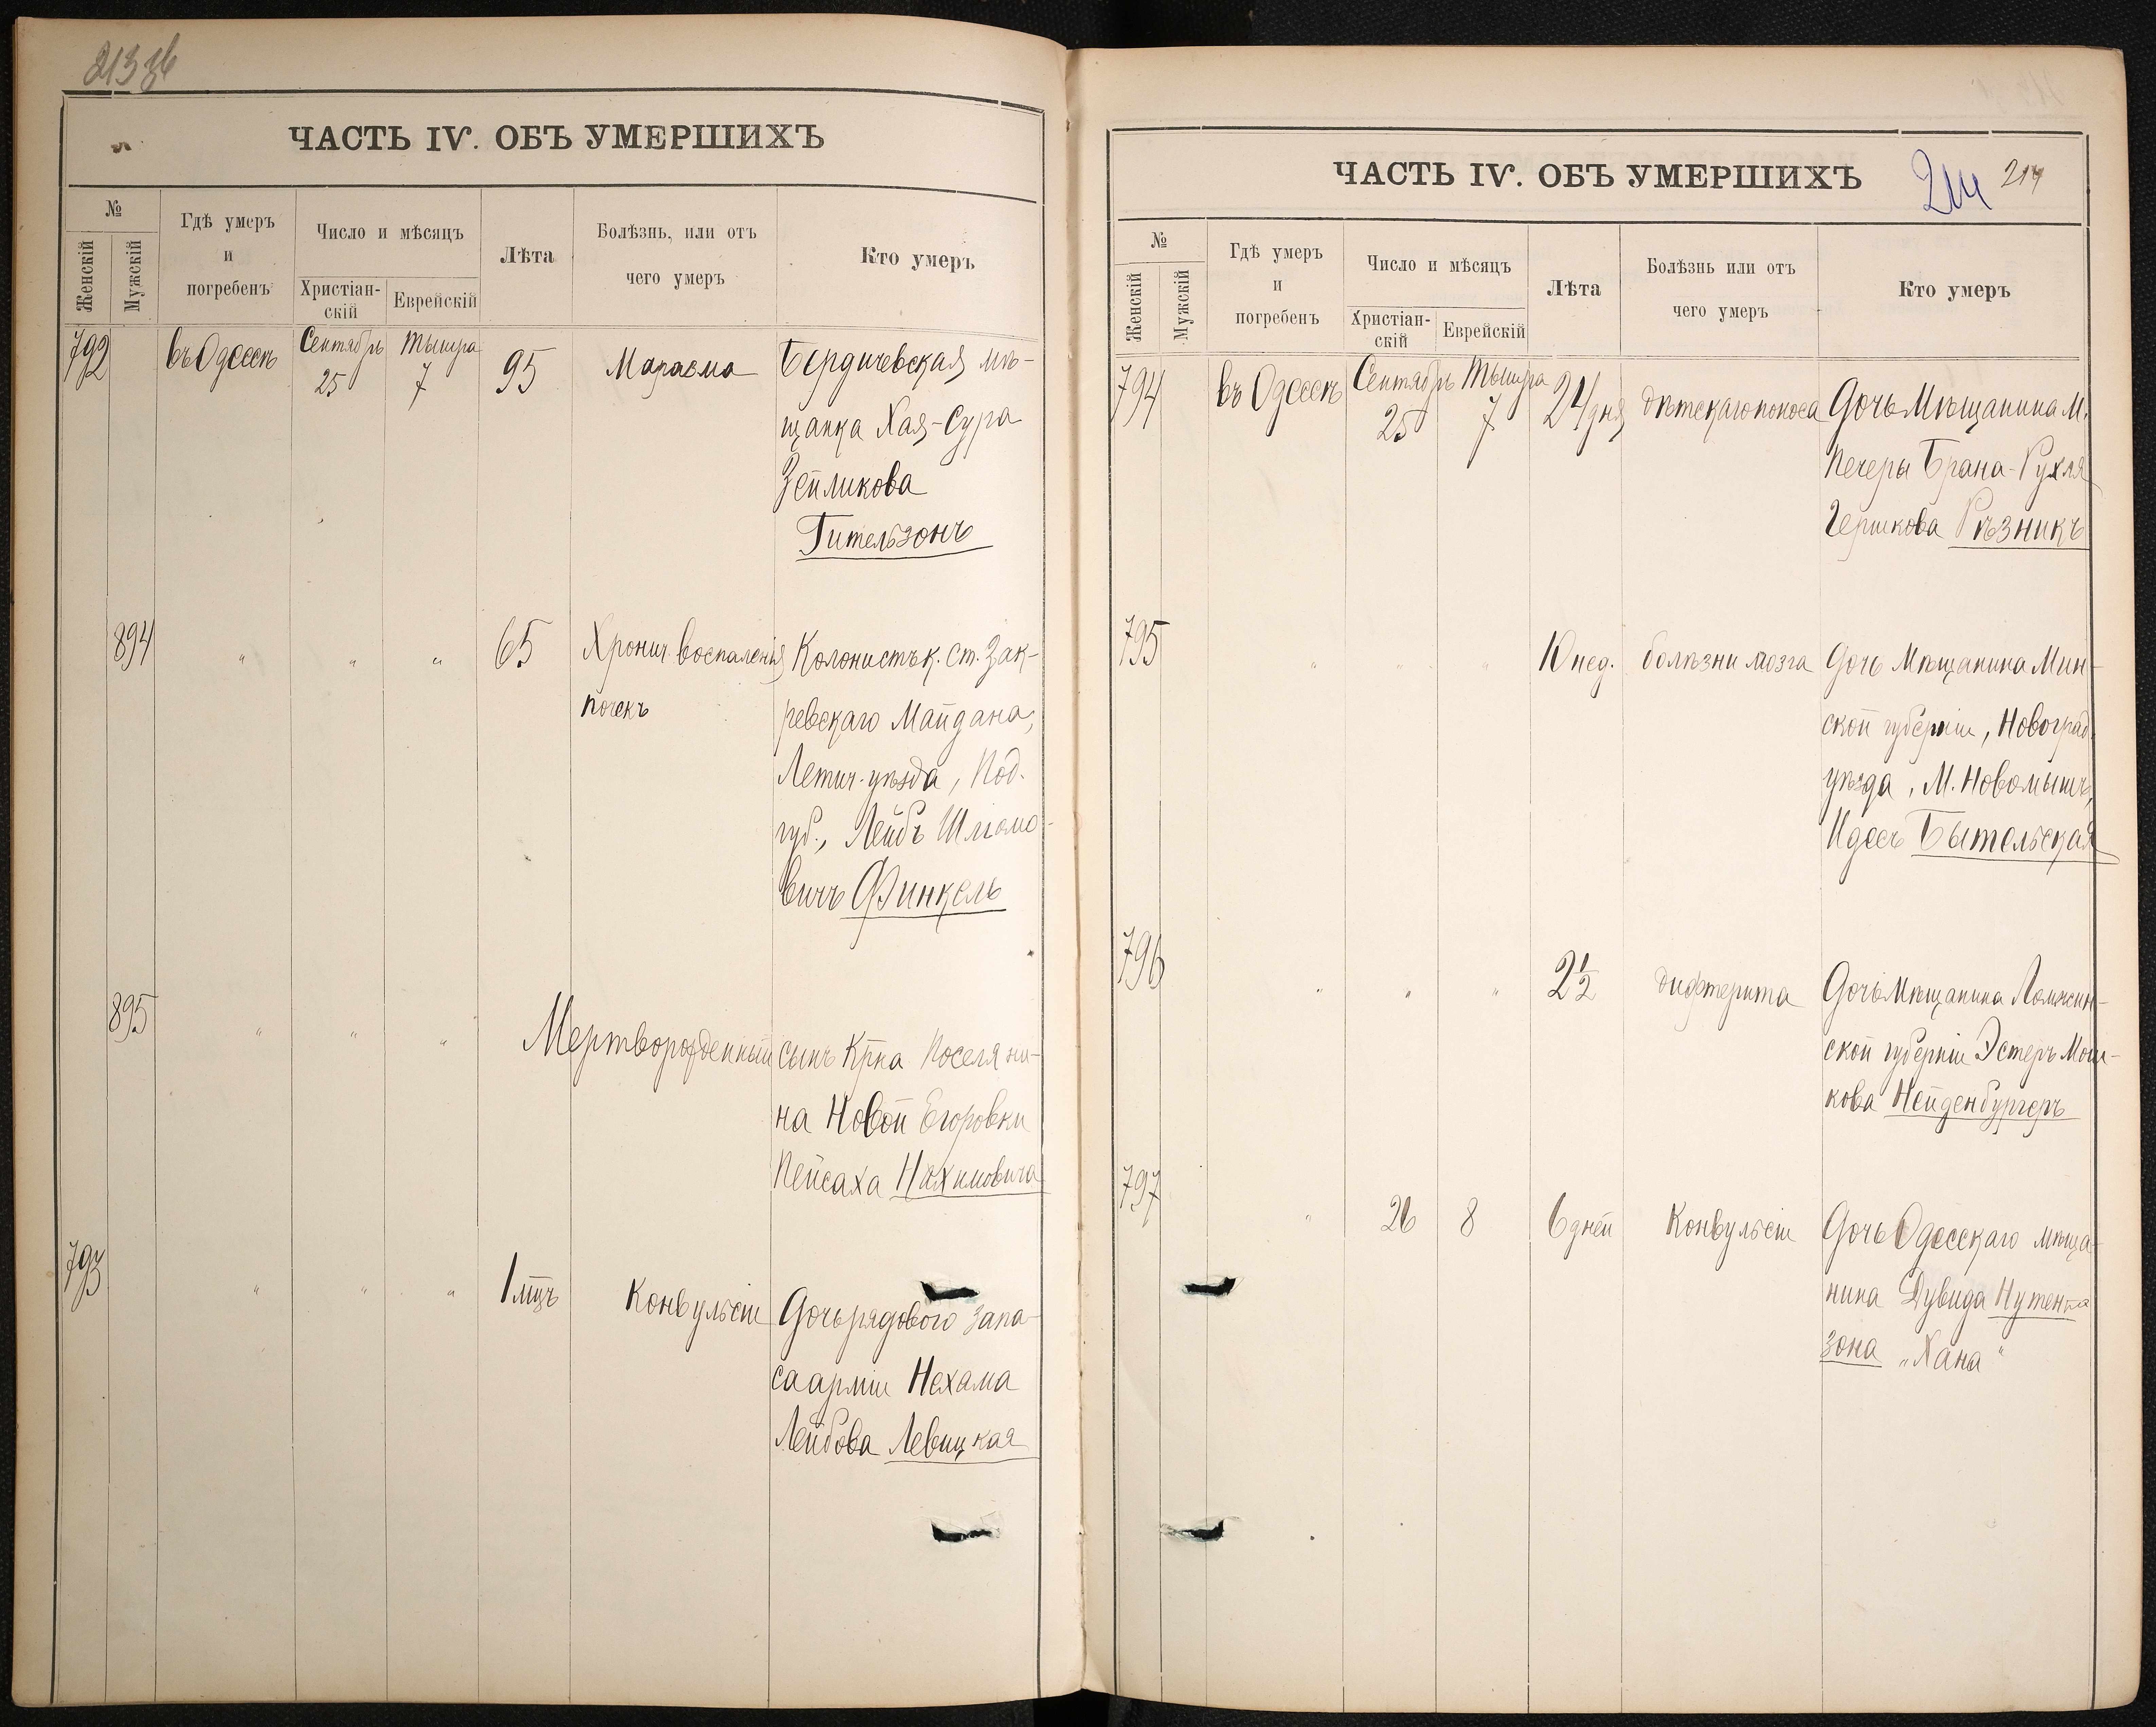 213 об
ЧАСТЬ IV. ОБЪ УМЕРШИХЪ
№
Женскій
Мужскій
Гдѣ умеръ
и
погребенъ
Число и мѣсяцъ
Христіан-
скій
Еврейскій
Лѣта
Болѣзнь, или отъ
чего умеръ
Кто умеръ
792 въ Одессѣ Сентябрь 25 Тышра 7 95 Маразма Бердичевская мѣ-
щанка Хая-Сура
Зейликова
Гительзонъ
894 " " " 65 Хронич. воспаленія Колонистъ к. ст. Зак-
почекъ ревскаго Майдана,
Летич. уѣзда, Под.
губ., Лейбъ Шліомо-
вичъ Финкель
895 " " " Мертворожденный сынъ Крна поселяни-
на Новой Егоровки
Пейсаха Нахимовича
793 " " " 1 мцъ Конвульсіи Дочь рядового запа-
са арміи Нехама
Лейбова Левицкая
ЧАСТЬ IV. ОБЪ УМЕРШИХЪ
214 214
№
Женскій
Мужскій
Гдѣ умеръ
и
погребенъ
Число и мѣсяцъ
Христіан-
скій
Еврейскій
Лѣта
Болѣзнь или отъ
чего умеръ
Кто умеръ
794 въ Одессѣ Сентябрь 25 Тышра 7 24 дня дѣтскаго поноса Дочь Мѣщанина М.
Печеры Брана-Рухля
Гершкова Рѣзникъ
795 " " " 10 нед. болѣзни мозга Дочь Мѣщанина Мин-
ской губерніи, Новоград.
уѣзда, М. Новомышъ,
Идесъ Бытельская
796 " " " 2½ дифтерита Дочь Мѣщанина Ломжин-
ской губерніи Эстеръ Мош-
кова Нейденбургеръ
797 " 26 8 6 дней Конвульсіи Дочь Одесскаго мѣща-
нина Дувида
зона „Хана"